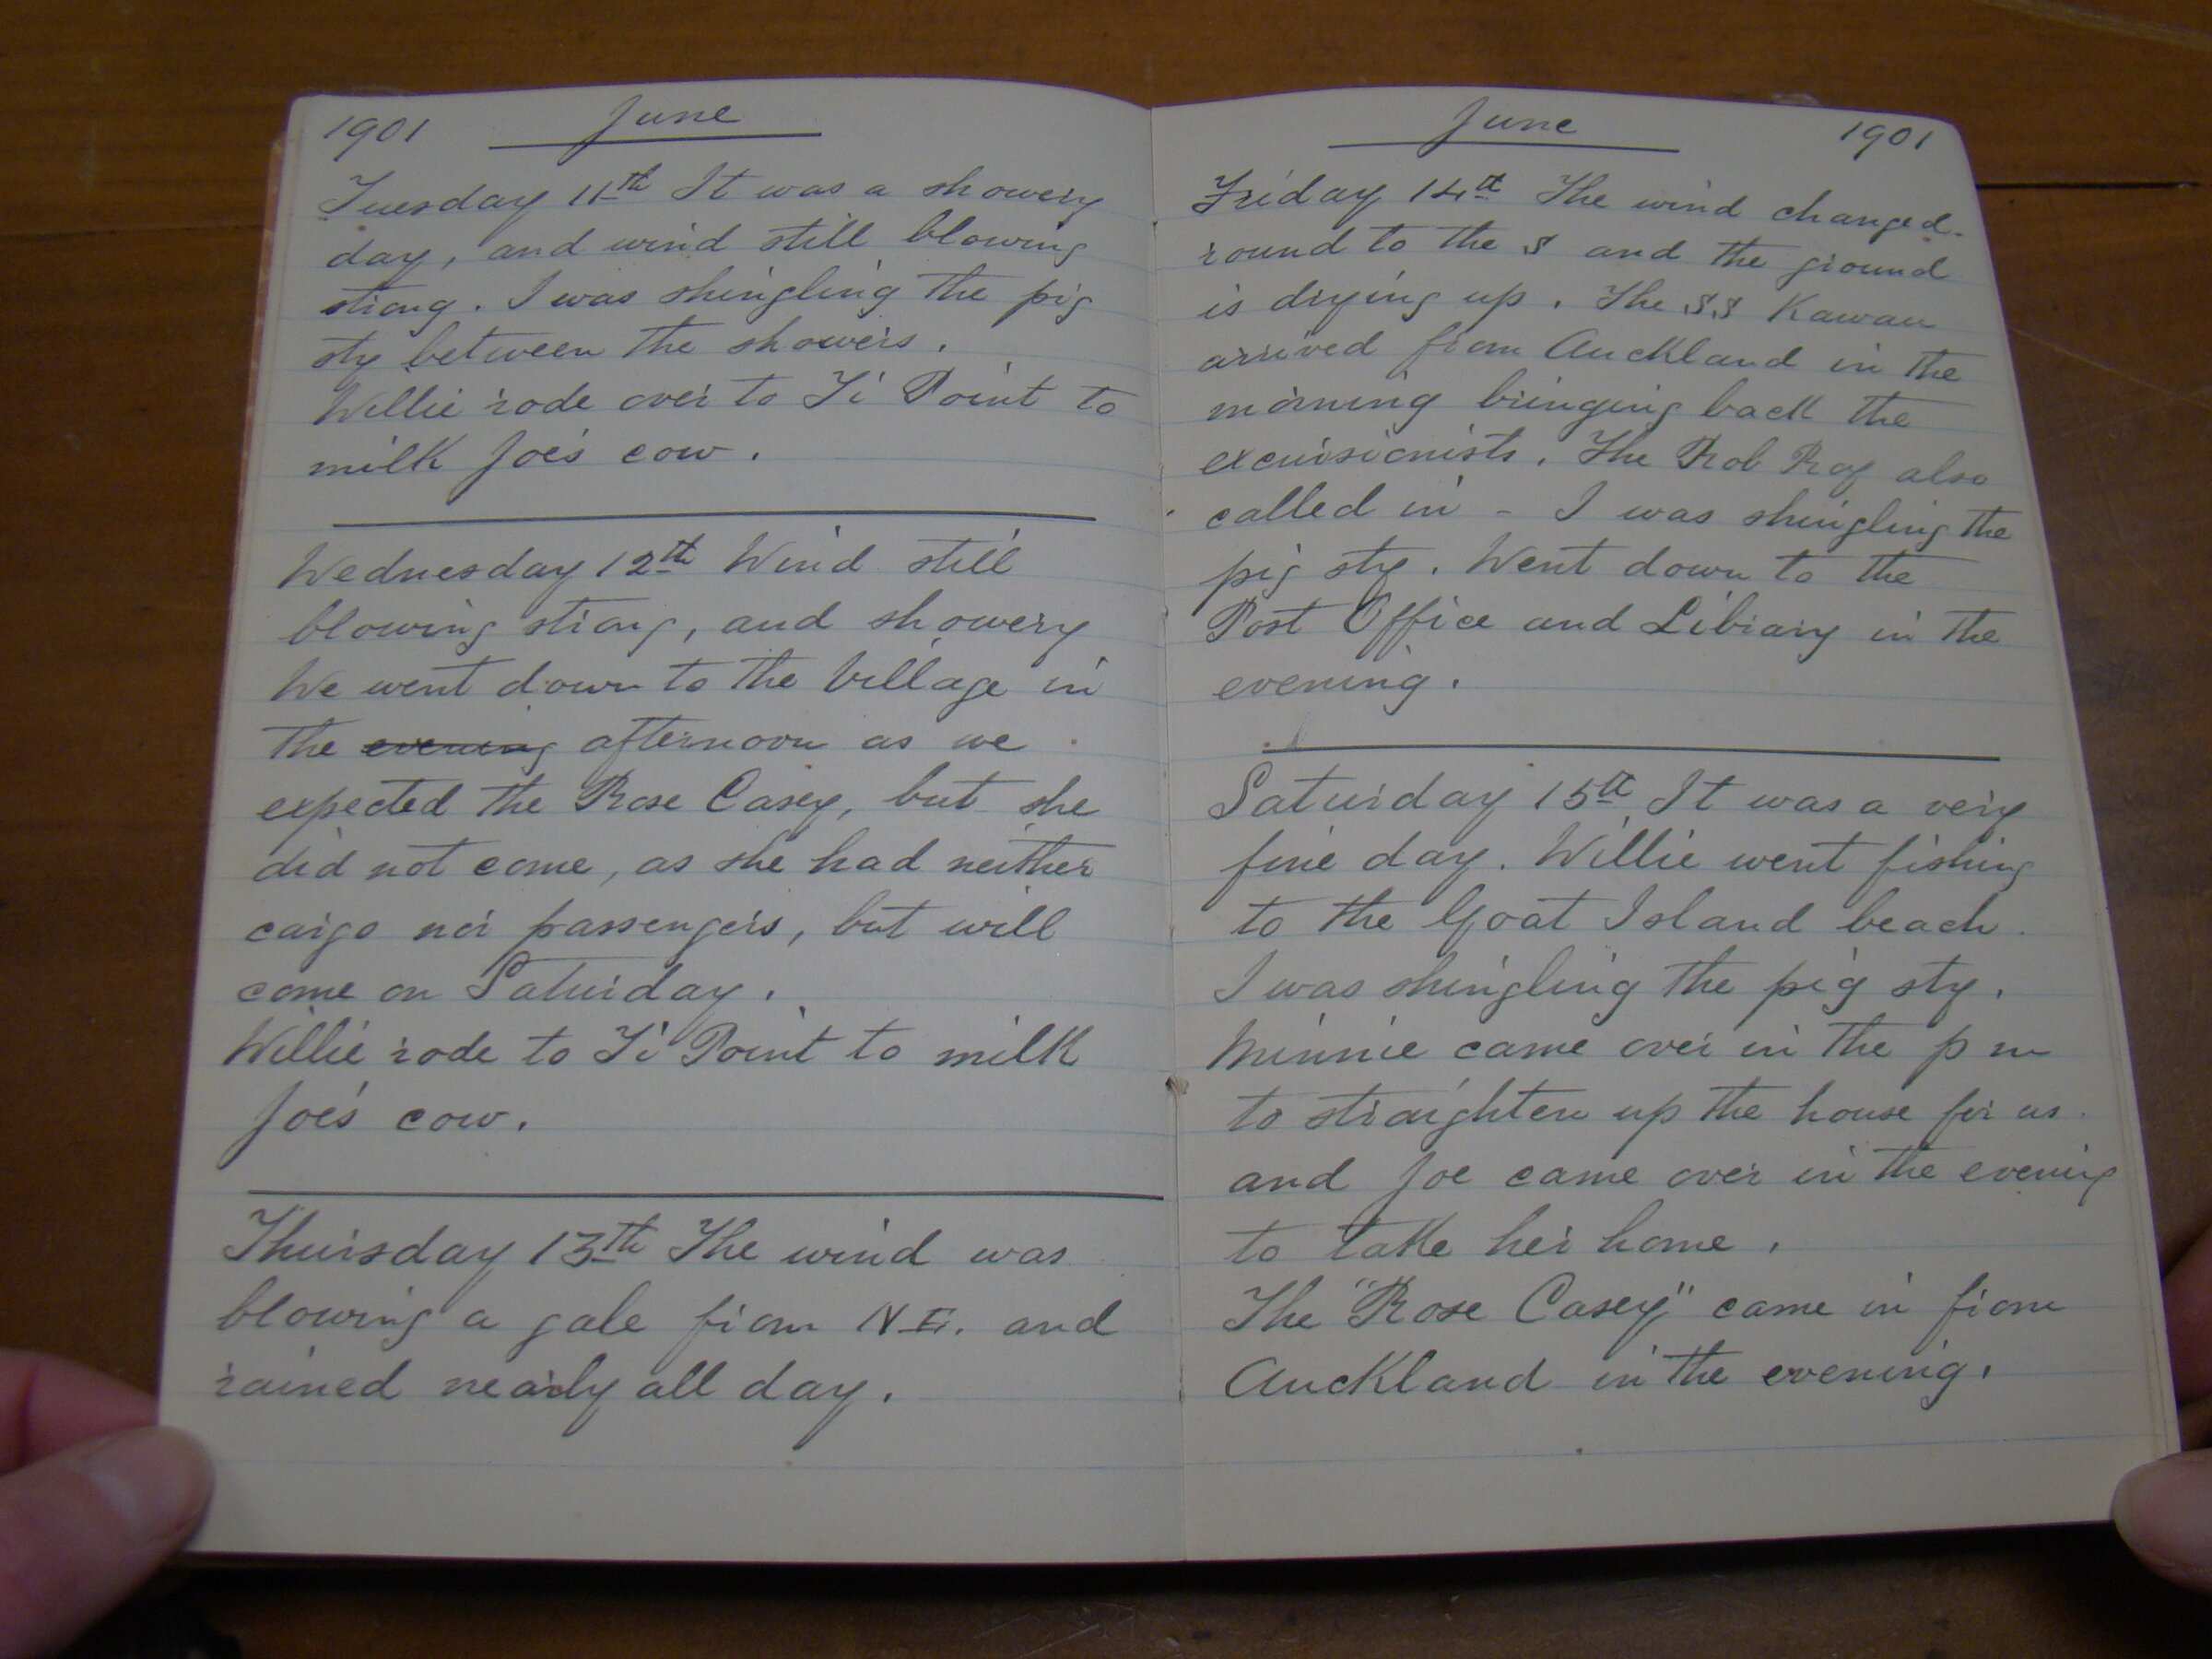 1901 June
Tuesday 11th It was a showery
day, and wind still blowing
strong. I was shingling the pig
sty between the showers.
Willie rode over to Ti Point to
milk Joe's cow.
Wednesday 12th Wind still
blowing strong, and showery
We went down to the Village in
the evening afternoon as we
expected the Rose Casey, but she
did not come, as she had neither
cargo nor passengers, but will
come on Saturday.
Willie rode to Ti Point to milk
Joe's cow.
Thursday 13th The wind was
blowing a gale from N.E. and
rained nearly all day.
June 1901
Friday 14th The wind changed
round to the S and the ground
is drying up. The SS Kawau
arrived from Auckland in the
morning bringing back the
excursionists. The Rob Roy also
called in - I was shingling the
pig sty. Went down to the
Post Office and Library in the
evening.
Saturday 15th It was a very
fine day. Willie went fishing
to the Goat Island beach.
I was shingling the pig sty.
Minnie came over in the p m
to straighten up the house for us
and Joe came over in the evening
to take her home.
The "Rose Casey" came in from
Auckland in the evening.